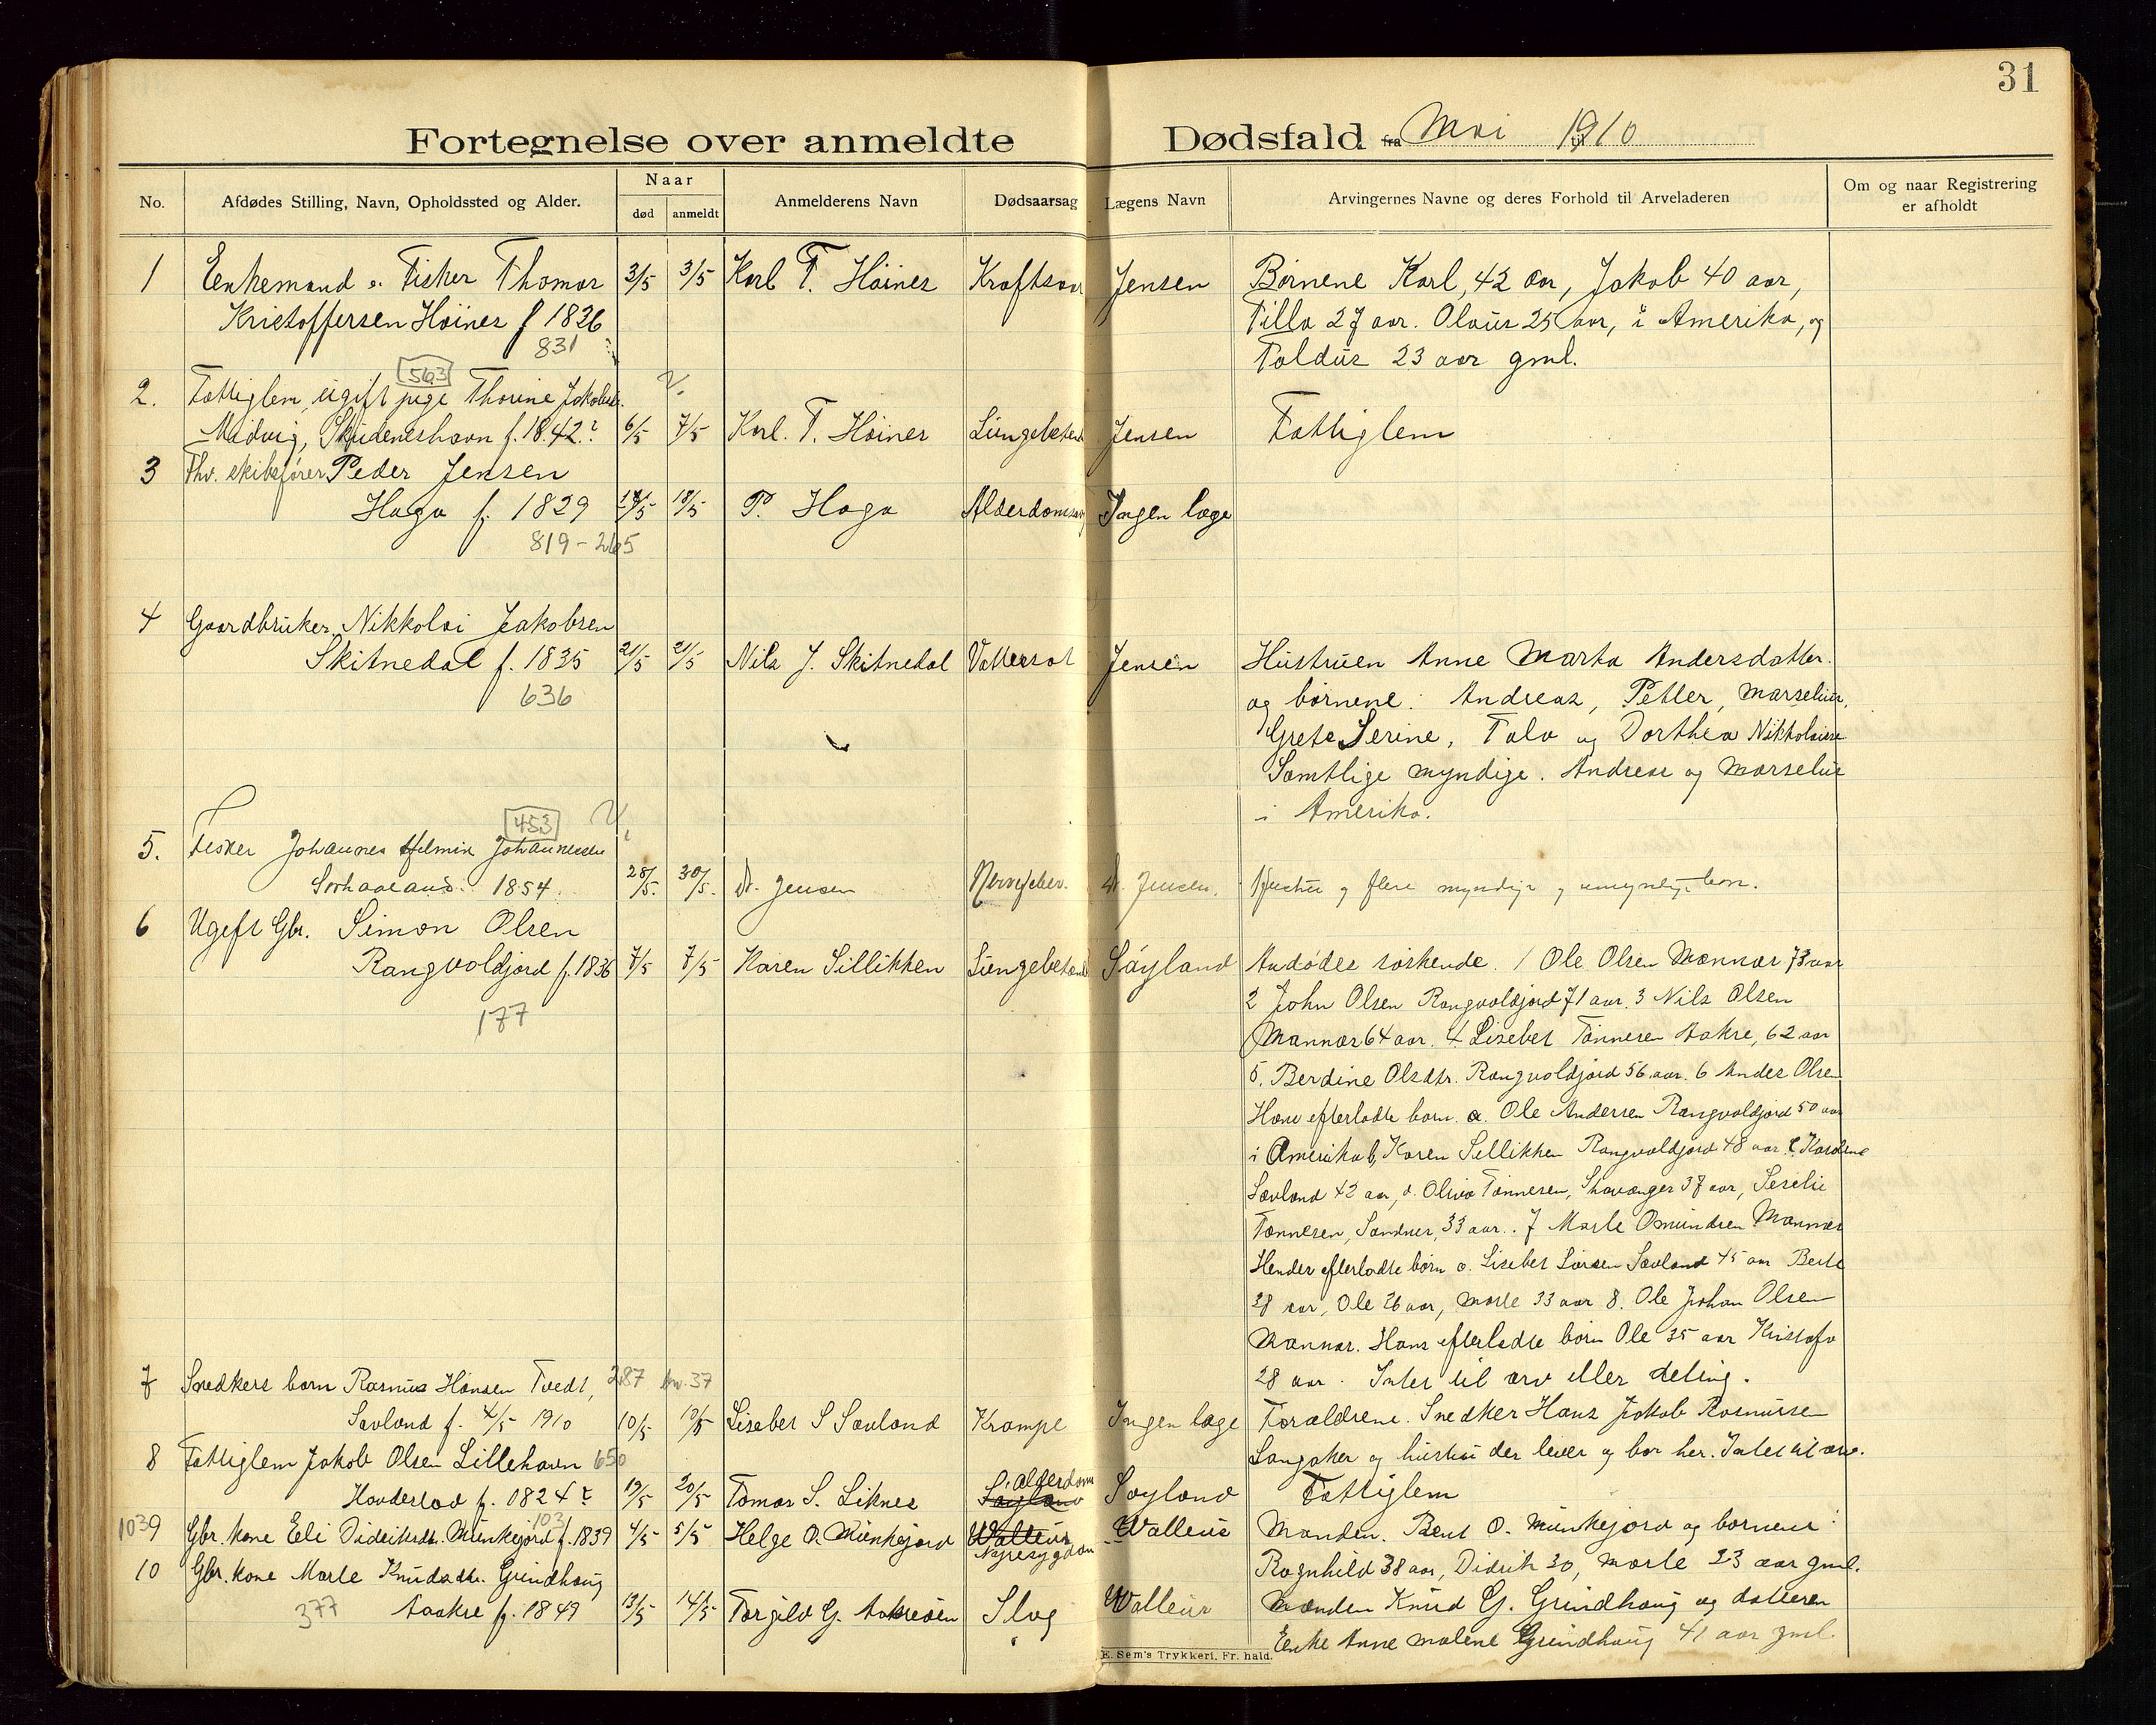 31
Fortegnelse over anmeldte Dødsfald fra Mai til 1910
No. Afdødes Stilling, Navn, Opholdssted og Alder. Naar død anmeldt Anmelderens Navn Dødsaarsag Lægens Navn Arvingernes Navne og deres Forhold til Arveladeren Om og naar Registrering er afholdt
1 Enkemand o. Fisker Thomas 3/5 3/5 Karl T. Höines Kræftsaar Jensen Börnene Karl, 42 aar, Jakob 40 aar,
Kristoffersen Höines f 1826 Tilla 27 aar. Olaus 25 aar, i Amerika, og
831 Taldus 23 aar gml.
563
2. Fattiglem, ugift pige Thorine Jakobsd.
Midvig, Skudeneshavn f. 1842? 6/5 7/5 Karl. T. Höines Lungebetend Jensen Fattiglem
3 Fhv. skibsfører Peder Jensen
Haga f. 1829 18/5 P. Haga Alderdomssvag Ingen læge
819-265
4 Gaardbruker Nikkolai Jakobsen
Skitnedal f. 1835 21/5 21/5 Nils J. Skitnedal Vattersot Jensen Hustruen Anne Marta Andersdatter.
636 og børnene: Andreas, Petter, Marselius,
Grete Serine, Tala og Dorthea Nikkolaisen
Samtlige myndige. Andreas og Marselius
i Amerika.
453
5. Fisker Johannes Helmik Johannessen
Sørhaaland 1854. 28/5. 30/5. Dr. Jensen Nervefeber. Dr. Jensen. Hustru og flere myndige og umyndige børn.
6 Ugift Gbr. Simon Olsen
Rangvoldjord f. 1836 7/5 7/5 Karen Sillikken Lungebetend Säyland Avdødes søskende. 1 Ole Olsen Mannæs 73 aar
177 2 John Olsen Rangvoldjord 71 aar. 3 Nils Olsen
Mannæs 64 aar. 4 Lisebet Tönnesen Aakre, 62 aar
5. Berdine Olsdtr. Rangvoldjord 56 aar. 6 Andes Olsen
Hans efterladte børn. a. Ole Andersen Rangvoldjord 50 aar
i Amerika b, Karen Sillikken Rangvoldjord 48 aar. c Kardine
Sævland 42 aar, d. Oliva Tönnesen, Stavanger 37 aar, Serelie
Tönnesen, Sandnes, 33 aar. 7 Marte Omundsen Mannæs
Hendes efterladte børn a. Lisebet Larsen Sævland 45 aar Berte
28 aar, Ole 26 aar, Marte 33 aar 8. Ole Johan Olsen
Mannæs. Hans efterladte børn Ole 35 aar Kristofa
28 aar. Intet til arv eller deling.
7 Snedkers barn Rasmus Hansen Tvedt, 287 37
Sævland f. 4/5 1910 10/5 10/5 Lisebet S Sævland Krampe Ingen læge Forældrene. Snedker Hans Jakob Rasmussen
Langaker og hustru der lever og bor her. Intet til arv.
8 Fattiglem Jakob Olsen Lillehavn 650
Hovdestad f. 1824 19/5 20/5 Tomas S. Liknes Alderdom Sayland Fattiglem
103
9 Gbr. kone Eli Didriksdtr. Munkejord f. 1839 4/5 5/5 Helge O. Munkejord Nyresygdom Walleus Manden. Bent O. Munkejord og børnene:
Ragnhild 38 aar, Didrik 30, Marte 23 aar gml.
10 Gbr. kone Marte Knudsdtr. Grindhaug
377 Aaakre f. 1849 13/5 14/5 Torgild G. Aakreöen Slag Walleus Manden Knud G. Grindhaug og datteren
Enke Anne Malene Grindhaug 41 aar gml.
E. Sem's Trykkeri, Fr. hald.